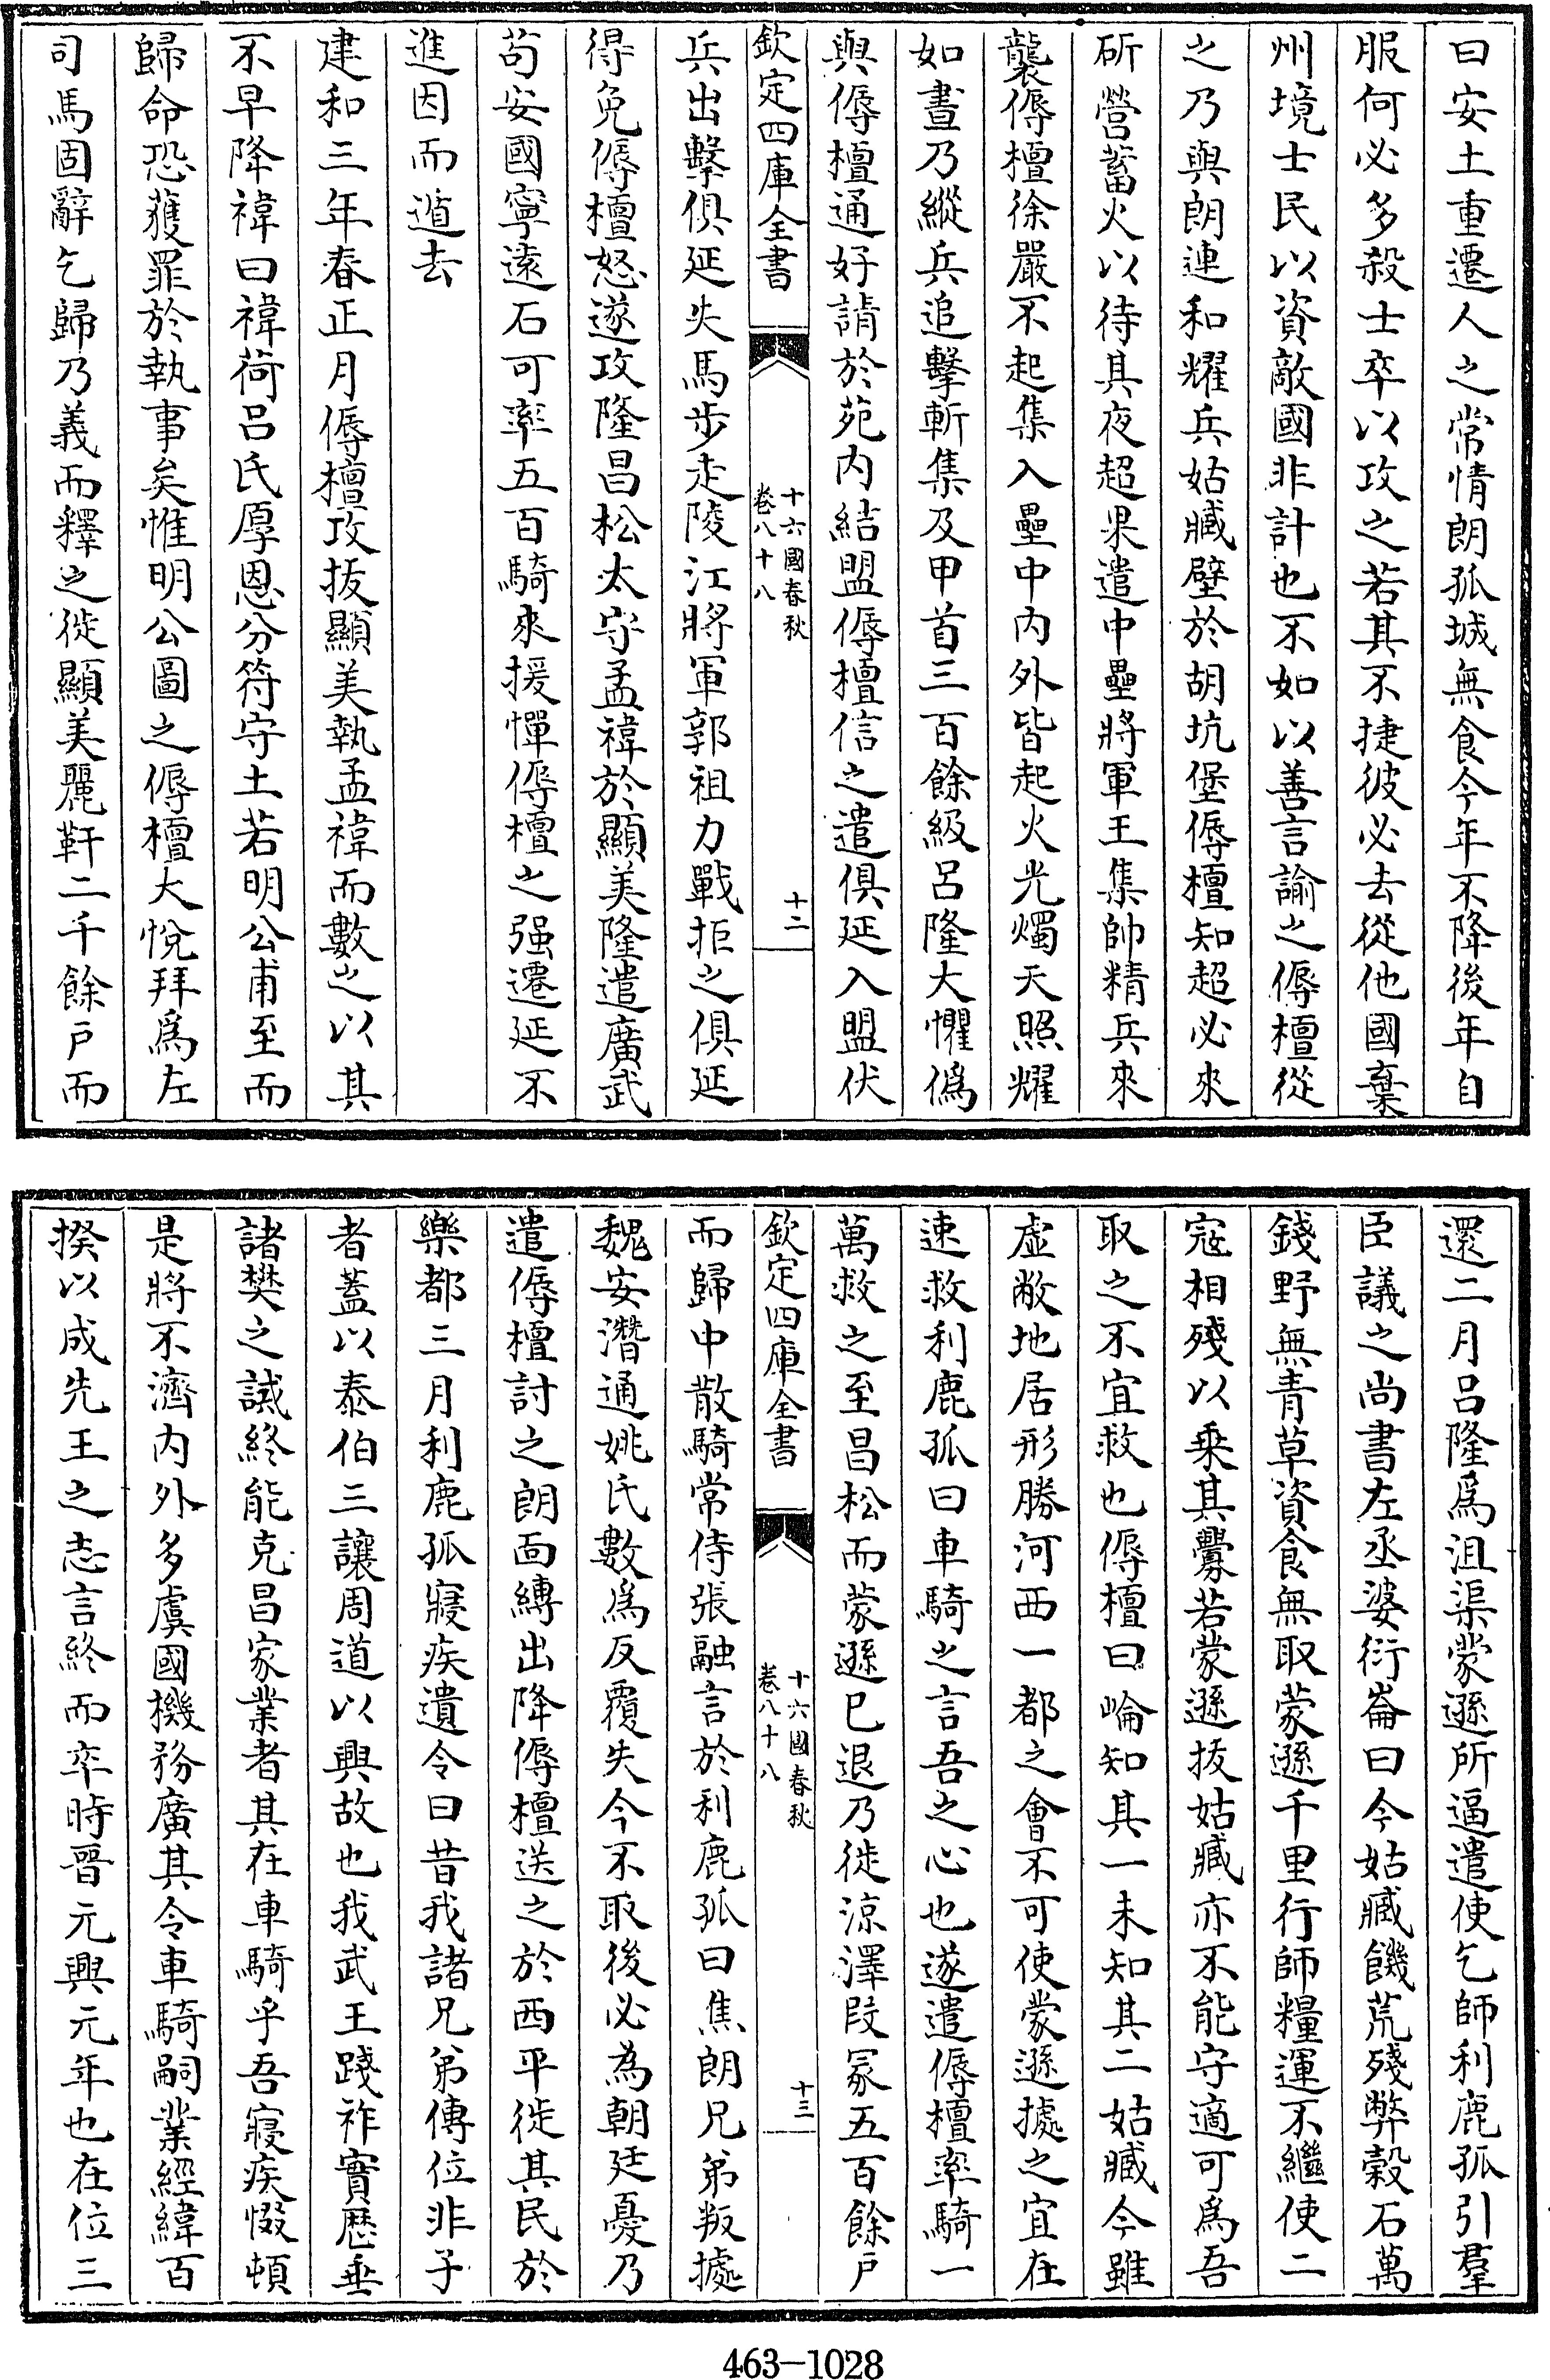 曰安土重遷人之常情朗孤城無食今年不降後年自
服何必多殺士卒以攻之若其不捷彼必去從他國棄
州境士民以資敵國非計也不如以善言諭之傉檀從
之乃與朗連和耀兵姑臧壁於胡坑堡傉檀知超必來
斫營蓄火以待其夜超果遣中壘將軍王集帥精兵來
襲傉檀徐嚴不起集入壘中内外皆起火光燭天照耀
如晝乃縱兵追擊斬集及甲首三百餘級呂隆大懼僞
與傉檀通好請於苑内結盟傉檀信之遣俱延入盟伏
欽定四庫全書
十六國春秋
卷八十八
十二
兵出擊俱延失馬步走陵江將軍郭祖力戰拒之俱延
得免傉檀怒遂攻隆昌松太守孟禕於顯美隆遣廣武
苟安國寧遠石可率五百騎來援憚傉檀之强遷延不
進因而遁去
建和三年春正月傉檀攻拔顯美執孟禕而數之以其
不早降禕曰禕荷呂氏厚恩分符守土若明公甫至而
歸命恐獲罪於執事矣惟明公圖之傉檀大悅拜爲左
司馬固辭乞歸乃義而釋之徙顯美麗靬二千餘戶而
還二月呂隆爲沮渠蒙遜所逼遣使乞師利鹿孤引羣
臣議之尚書左丞婆衍崙曰今姑臧饑荒殘弊穀石萬
錢野無青草資食無取蒙遜千里行師糧運不繼使二
寇相殘以乘其釁若蒙遜拔姑臧亦不能守適可爲吾
取之不宜救也傉檀曰崘知其一未知其二姑臧今雖
虚敝地居形勝河西一都之會不可使蒙遜據之宜在
速救利鹿孤曰車騎之言吾之心也遂遣傉檀率騎一
萬救之至昌松而蒙遜已退乃徙涼澤段冡五百餘戶
欽定四庫全書
十六國春秋
卷八十八
十三
而歸中散騎常侍張融言於利鹿孤曰焦朗兄弟叛據
魏安潛通姚氏數爲反覆失今不取後必為朝廷憂乃
遣傉檀討之朗面縛出降傉檀送之於西平徙其民於
樂都三月利鹿孤寢疾遺令曰昔我諸兄弟傳位非子
者蓋以泰伯三讓周道以興故也我武王踐祚實歷垂
諸樊之誠終能克昌家業者其在車騎乎吾寢疾惙頓
是將不濟内外多虞國機務廣其令車騎嗣業經緯百
揆以成先王之志言終而卒時晉元興元年也在位三
463-1028